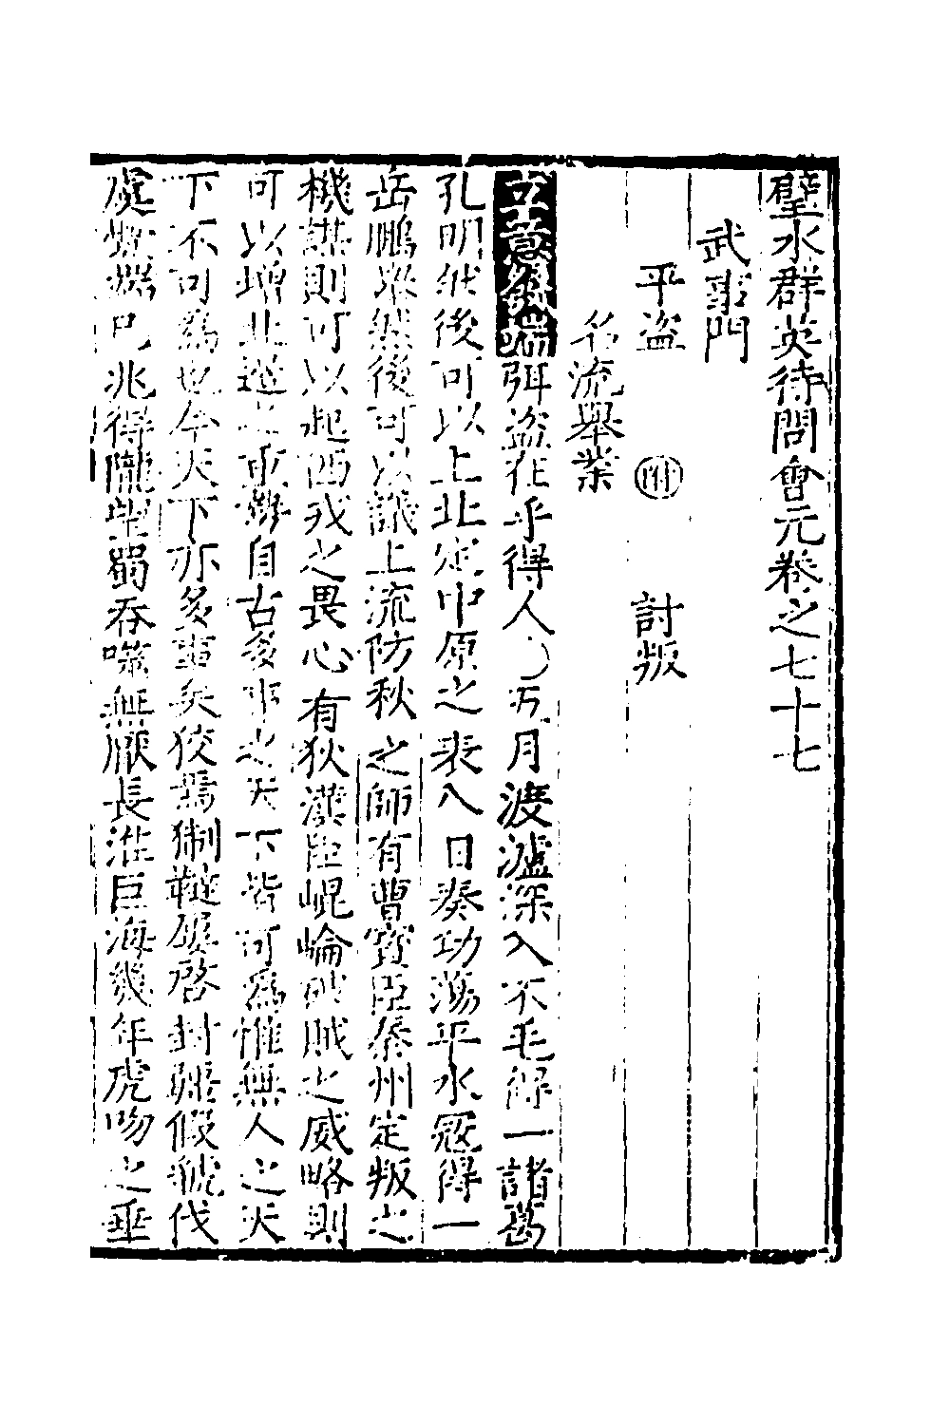 璧水群英待問會元卷之七十七
武事門
平盜 附 討叛
名流舉業
立意發端弭盜在乎得人五月渡瀘深入不毛得一諸葛
孔明然後可以上北定中原之表八日奏功蕩平水寇得一
岳鵬舉然後可以議上流防秋之師有曹寶臣秦州定叛之
機謀則可以起西戎之畏心有狄漢臣崐崘破賊之威略則
可以增北邊之重勢自古多事之天下皆可為惟無人之天
下不可為也今天下亦多事矣狡焉猘韃屢啓封疆假虢伐
虞釁端已兆得隴望蜀吞噬無厭長淮巨海幾年虎吻之垂